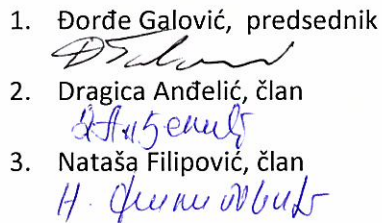 1. Đorđe Galović, predsednik
2. Dragica Anđelić, član
3. Nataša Filipović, član
Н. Филиповић